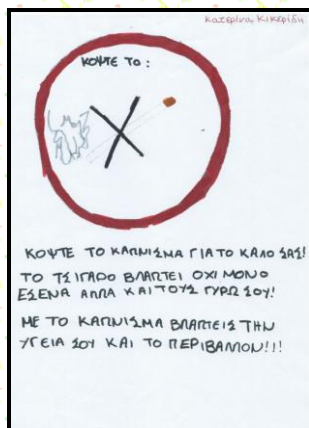 Κατερίνα Κικερίδη
ΚΟΨΤΕ ΤΟ :
ΚΟΨΤΕ ΤΟ ΚΑΠΝΙΣΜΑ ΓΙΑ ΤΟ ΚΑΛΟ ΣΑΣ!
ΤΟ ΤΣΙΓΑΡΟ ΒΛΑΠΤΕΙ ΟΧΙ ΜΟΝΟ
ΕΣΕΝΑ ΑΛΛΑ ΚΑΙ ΤΟΥΣ ΓΥΡΩ ΣΟΥ!
ΜΕ ΤΟ ΚΑΠΝΙΣΜΑ ΒΛΑΠΤΕΙΣ ΤΗΝ
ΥΓΕΙΑ ΣΟΥ ΚΑΙ ΤΟ ΠΕΡΙΒΑΛΛΟΝ!!!